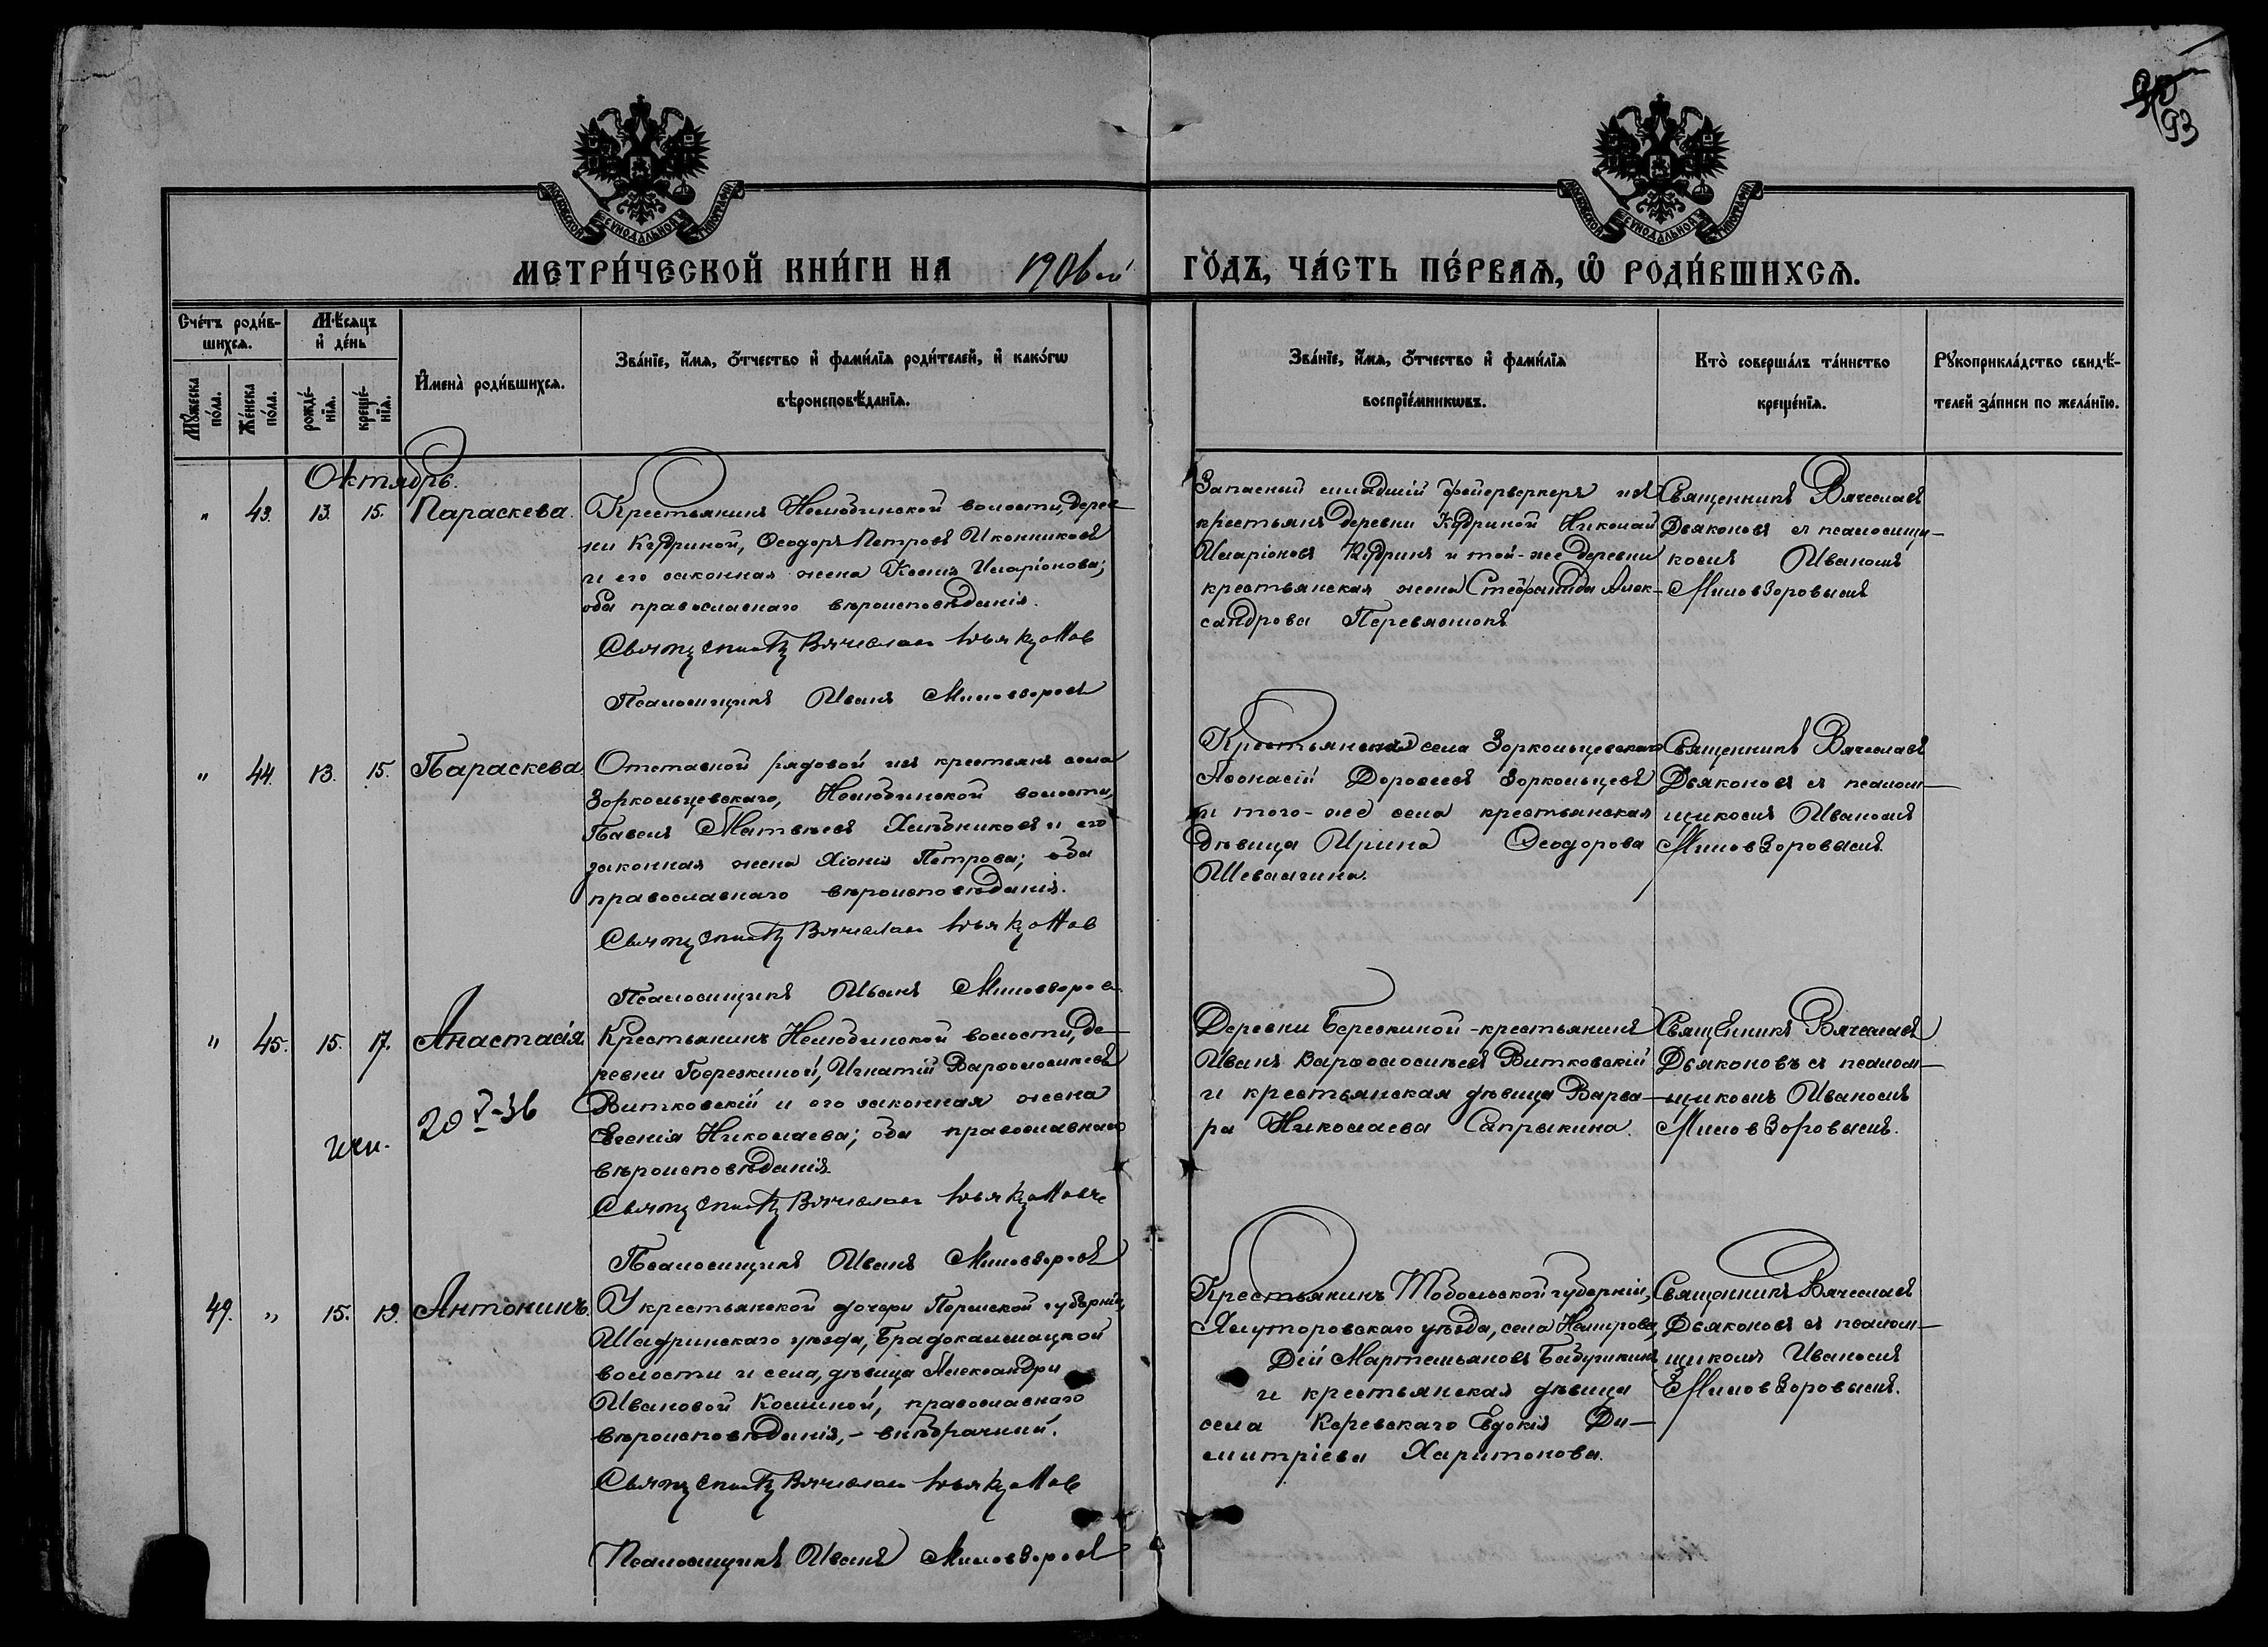 90
93
МОСКОВСКОЙ СѴНОДАЛЬНОЙ ТИПОГРАФІИ
МОСКОВСКОЙ СѴНОДАЛЬНОЙ ТИПОГРАФІИ
МЕТРИ́ЧЕСКОЙ КНИ́ГИ НА 1906 ой ГО́ДЪ, ЧА́СТЬ ПЕ́РВАѦ, Ѡ҆ РОДИ́ВШИХСѦ.
Сче́тъ роди́в-
шихсѧ.
Мꙋ́жеска по́ла.
Же́нска по́ла.
Мѣ́сѧцъ
и҆ де́нь
рожде́-
нїѧ.
креще́-
нїѧ.
И҆мена̀ роди́вшихсѧ.
Зва́нїе, и҆́мѧ, ѻ҆́тчество и҆ фами́лїѧ роди́телей, и҆ како́гѡ
вѣроисповѣ́данїѧ.
Зва́нїе, и҆́мѧ, ѻ҆́тчество и҆ фами́лїѧ
воспрїе́мникѡвъ.
Кто̀ соверша́лъ та́инство
креще́нїѧ.
Рꙋкоприкла́дство свидѣ́-
телей за́писи по жела́нїю.
Октябрь.
" 43. 13. 15. Параскева.
Крестьянинъ Нелюбинской волости, дерев-
ни Кудриной, Ѳеодоръ Петровъ Иконниковъ
и его законная жена Ксенія Иларіонова;
оба православнаго вѣроисповѣданія.
Священникъ Вячеславъ Дьяконов
Псаломщикъ Иванъ Миловзоровъ
Запасный младшій фейерверкеръ изъ
крестьянъ деревни Кудриной Николай
Иларіоновъ Кудринъ и той-же деревни
крестьянская жена Стефанида Алек-
сандрова
Священникъ Вячеславъ
Дьяконовъ съ псаломщи-
комъ Иваномъ
Миловзоровымъ
" 44. 13. 15. Параскева
Отставной рядовой изъ крестьянъ села
Зоркольцевскаго, Нелюбинской волости,
Павелъ Матвѣевъ Хлѣбниковъ и его
законная жена Хіонія Петрова; оба
православнаго вѣроисповѣданія.
Священникъ Вячеславъ Дьяконов
Псаломщикъ Иванъ Миловзоров
села Зоркольцевскаго
Аѳонасій Дороѳеевъ Зоркольцевъ
и того-же села крестьянская
дѣвица Ирина Ѳеодорова
Шевалгина.
Священникъ Вячеславъ
Дьяконовъ съ псалом-
щикомъ Иваномъ
Миловзоровымъ.
" 45. 15. 17. Анастасія.
20 V-36
Крестьянинъ Нелюбинской волости, де-
ревни Березкиной, Игнатій Варѳоломѣевъ
Витковскій и его законная жена
Евгенія Николаева; оба православнаго
вѣроисповѣданія.
Священникъ Вячеславъ Дьяконовъ
Псаломщикъ Иванъ Миловзоровъ
Деревни Березкиной-крестьянинъ
Иванъ Варѳоломѣевъ Витковскій
и крестьянская дѣвица Варва-
ра Николаева Сапрыкина.
Священникъ Вячеславъ
Дьяконовъ съ псалом-
щикомъ Иваномъ
Миловзоровымъ.
49. " 15. 19. Антонинъ.
У крестьянской дочери Пермской губерніи,
Шадринскаго уѣзда, Брадокалмацкой
волости и села, дѣвицы Александры
Ивановой Косминой, православнаго
вѣроисповѣданія,- внѣбрачный.
Священникъ Вячеславъ Дьяконов
Псаломщикъ Иванъ Миловзоровъ
Крестьянинъ Тобольской губерніи,
Ялуторовскаго уѣзда, села
Дій Мартемьяновъ Бабушкинъ
и крестьянская дѣвица
села Каревскаго Евдокія Ди-
митріева Харитонова.
Священникъ Вячеславъ
Дьяконовъ съ псалом-
щикомъ Иваномъ
Миловзоровымъ.